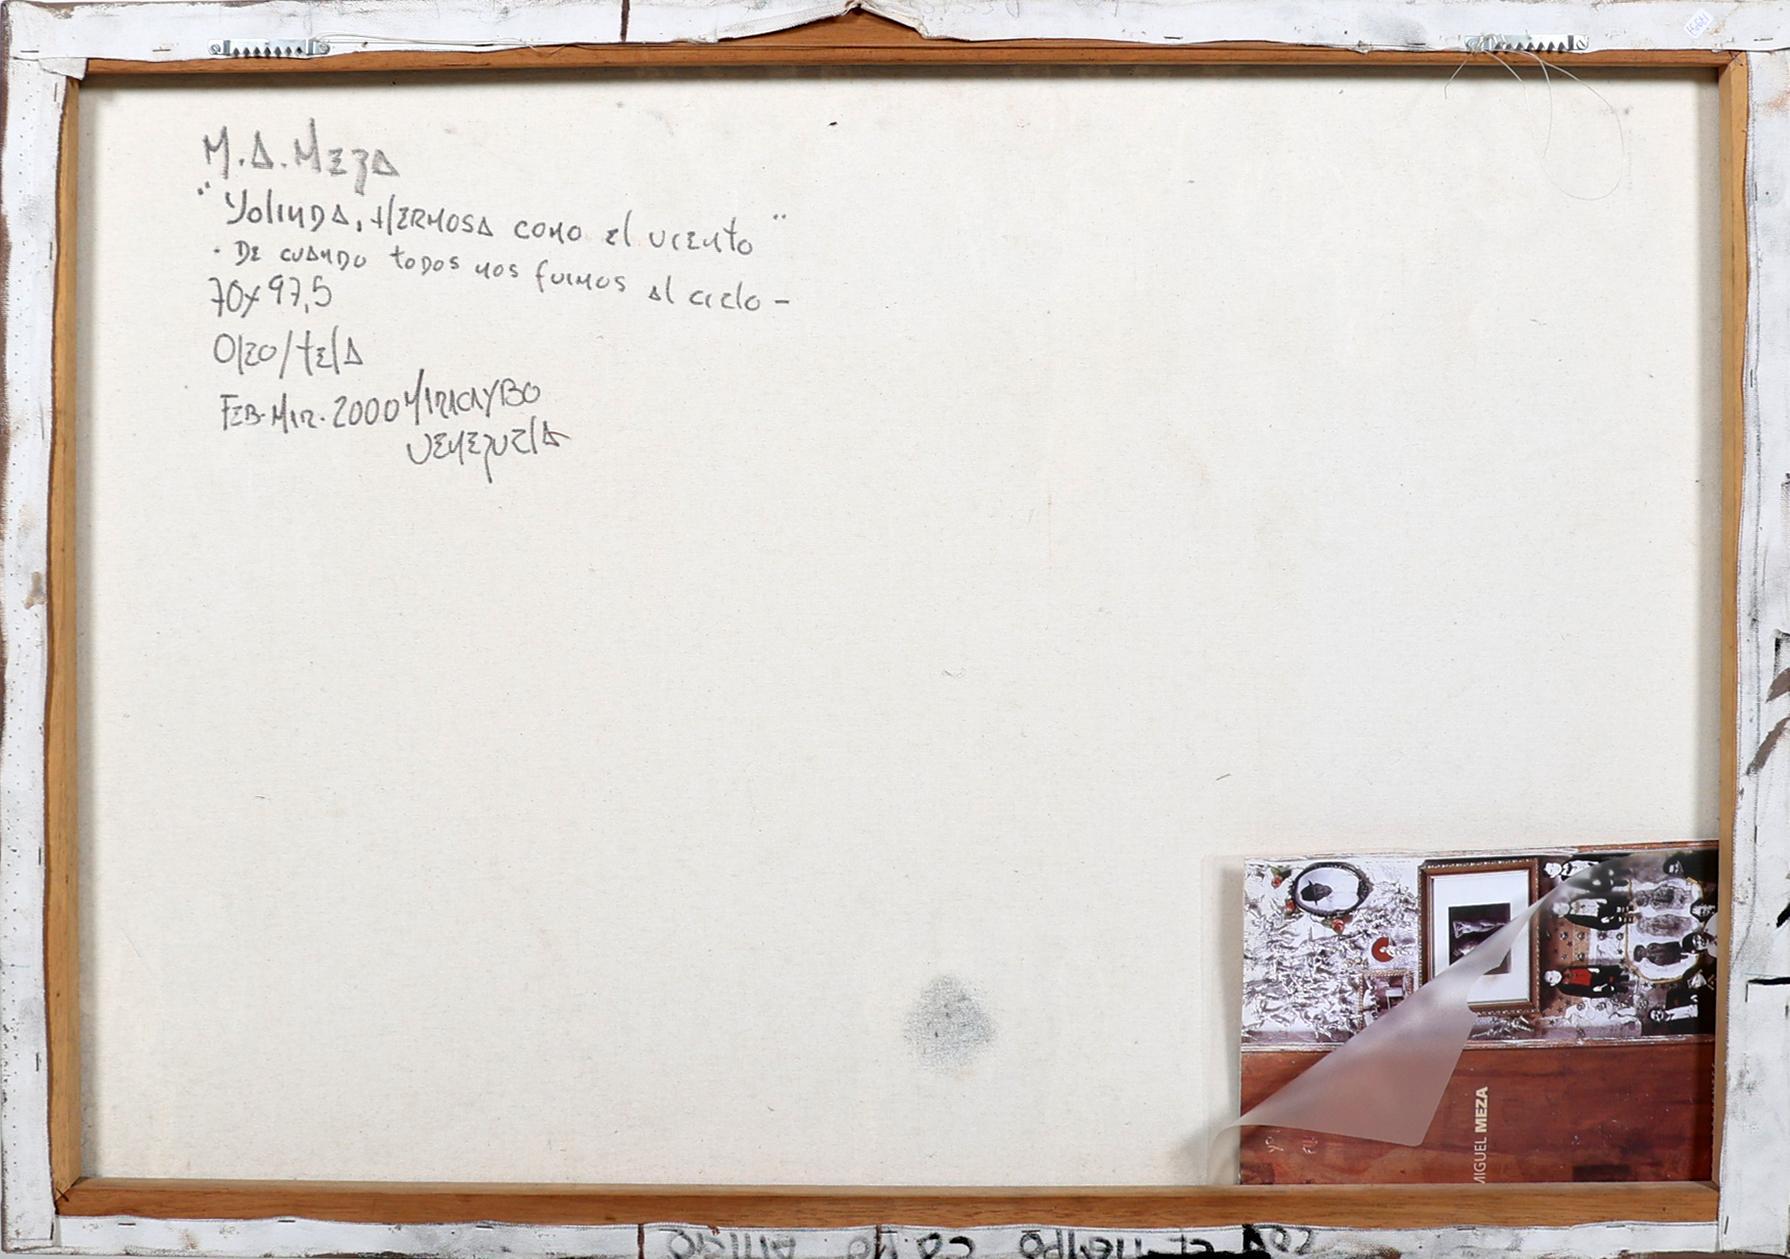 M.A.MEZA
"YOLINDA, HERMOSA COMO El VIENTO"
· DE CUANDO todos NOS fuimos Al cielo -
70x97,5
Oleo/tElA
FEB-MAR. 2000 MARACAYBO
VENEZUELA
MIGUEL MEZA
CON EL TIEMPO COMO AMIGO